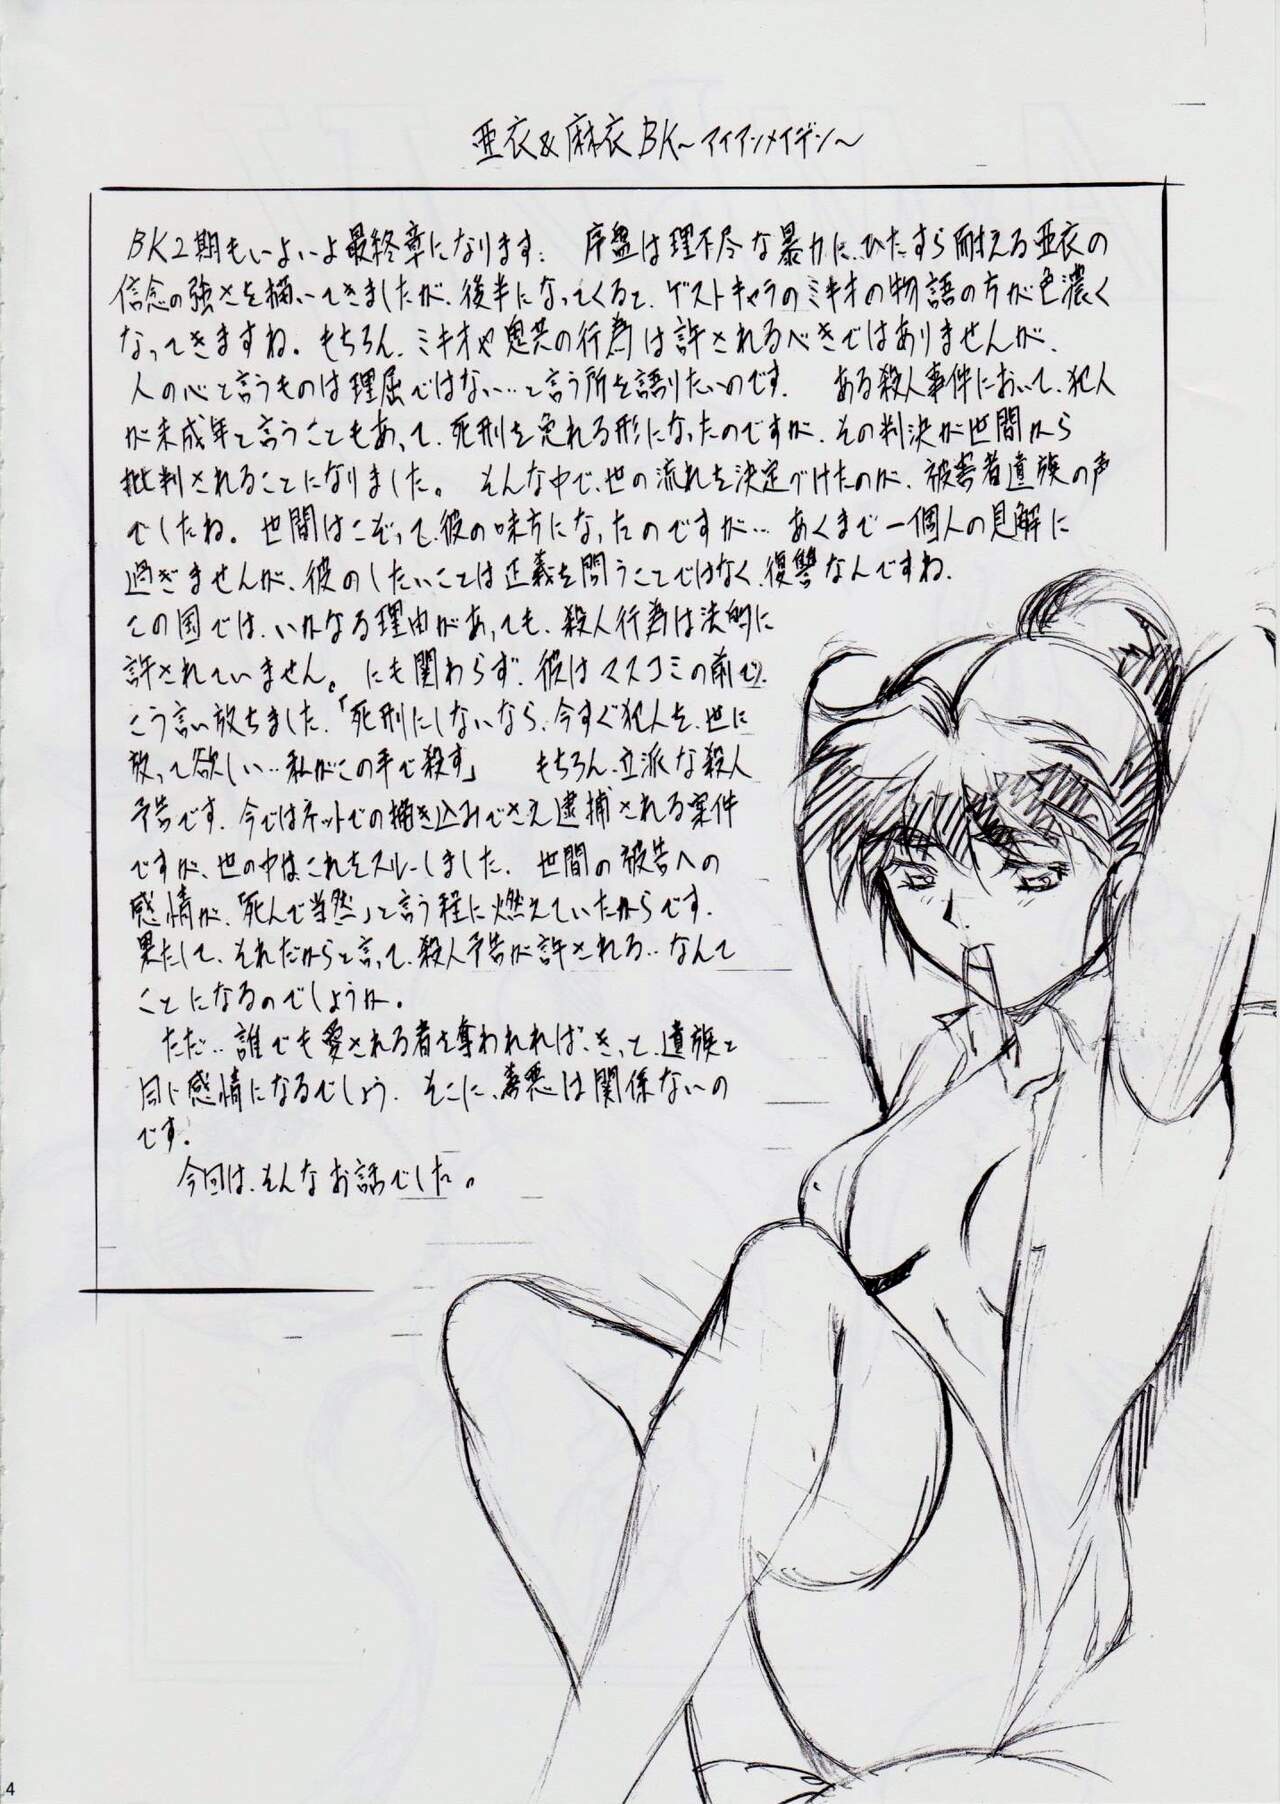 亜衣&麻衣BK～アイアンメイデン～
BK2期もいよいよ最終章になります. 序盤は理不尽な暴力に、ひたすら耐える亜衣の
信念の強さを描いてきましたが、後半になってくると、ゲストキャラのミキオの物語の方が色濃く
なってきますね。もちろん、ミキオや鬼共の行為は許されるべきではありませんが、
人の心と言うものは理屈ではない…と言う所を語りたいのです. ある殺人事件において、犯人
が未成年と言うこともあって、死刑を免れる形になったのですが、その判決が世間から
批判されることになりました。 そんな中で、世の流れを決定づけたのが、被害者遺族の声
でしたね。世間はこぞって、彼の味方になったのですが… あくまで一個人の見解に
過ぎませんが、彼のしたいことは正義を問うことではなく、復讐なんですね.
この国では、いかなる理由があっても、殺人行為は法的に
許されていません。にも関わらず、彼はマスコミの前で、
こう言い放ちました.「死刑にしないなら、今すぐ犯人を、世に
放って欲しい…私がこの手で殺す」 もちろん、立派な殺人
予告です. 今ではネットでの書き込みでさえ逮捕される案件
ですが、世の中は、これをスルーしました. 世間の被告への
感情が、「死んで当然」と言う程に燃えていたからです.
果たして、それだからと言って、殺人予告が許される…なんて
ことになるのでしょうか。
ただ…誰でも愛される者を奪われれば、きっと、遺族と
同じ感情になるでしょう. そこに、善悪は関係ないの
です.
今回は、そんなお話でした。
4